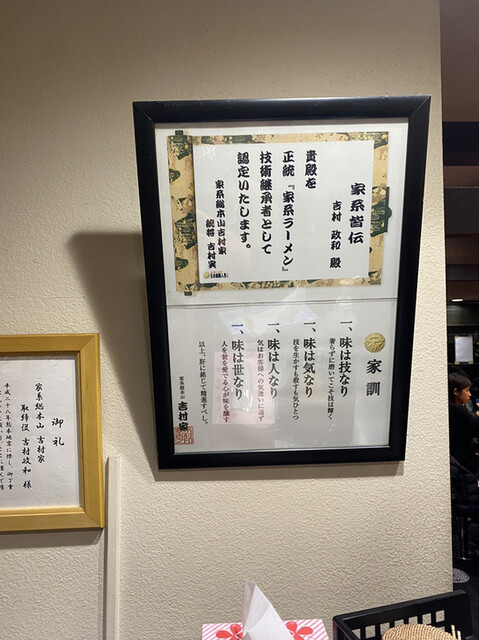 家系皆伝
吉村 政和 殿
貴殿を
正統『家系ラーメン』
技術継承者として
認定いたします。
家系総本山吉村家
総将 吉村実
家訓
一、味は技なり
奢らずに磨いてこそ技は輝く
一、味は気なり
技を生かすも殺すも気ひとつ
一、味は人なり
気はお客様への気遣いに通ず
一、味は世なり
人を世を愛でる心が味を醸す
以上、肝に銘じて精進すべし。
家系総本山
吉村家
御礼
家系総本山 吉村家
取締役 吉村政和 様
平成二十八年熊本地震に際し、御丁重